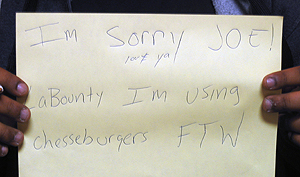 Im Sorry JOE!
aBounty Im using
chesseburgers FTW